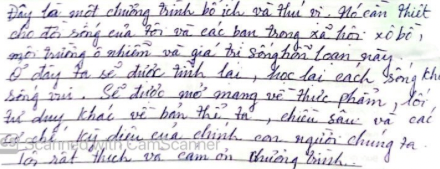 Đây là một chương trình bổ ích và thú vị. Nó cần thiết
cho đời sống của tôi và các bạn trong xã hội xô bồ,
môi trường ô nhiễm và giá trị sống hỗn loạn này.
Ở đây ta sẽ được tĩnh lại, học lại cách sống khỏe
sống vui. Sẽ được mở mang về thực phẩm, lối
tư duy khác về bản thể ta, chiều sâu và các
cơ chế kỳ diệu của chính con người chúng ta.
Tôi rất thích và cảm ơn chương trình.
Scanned with CamScanner